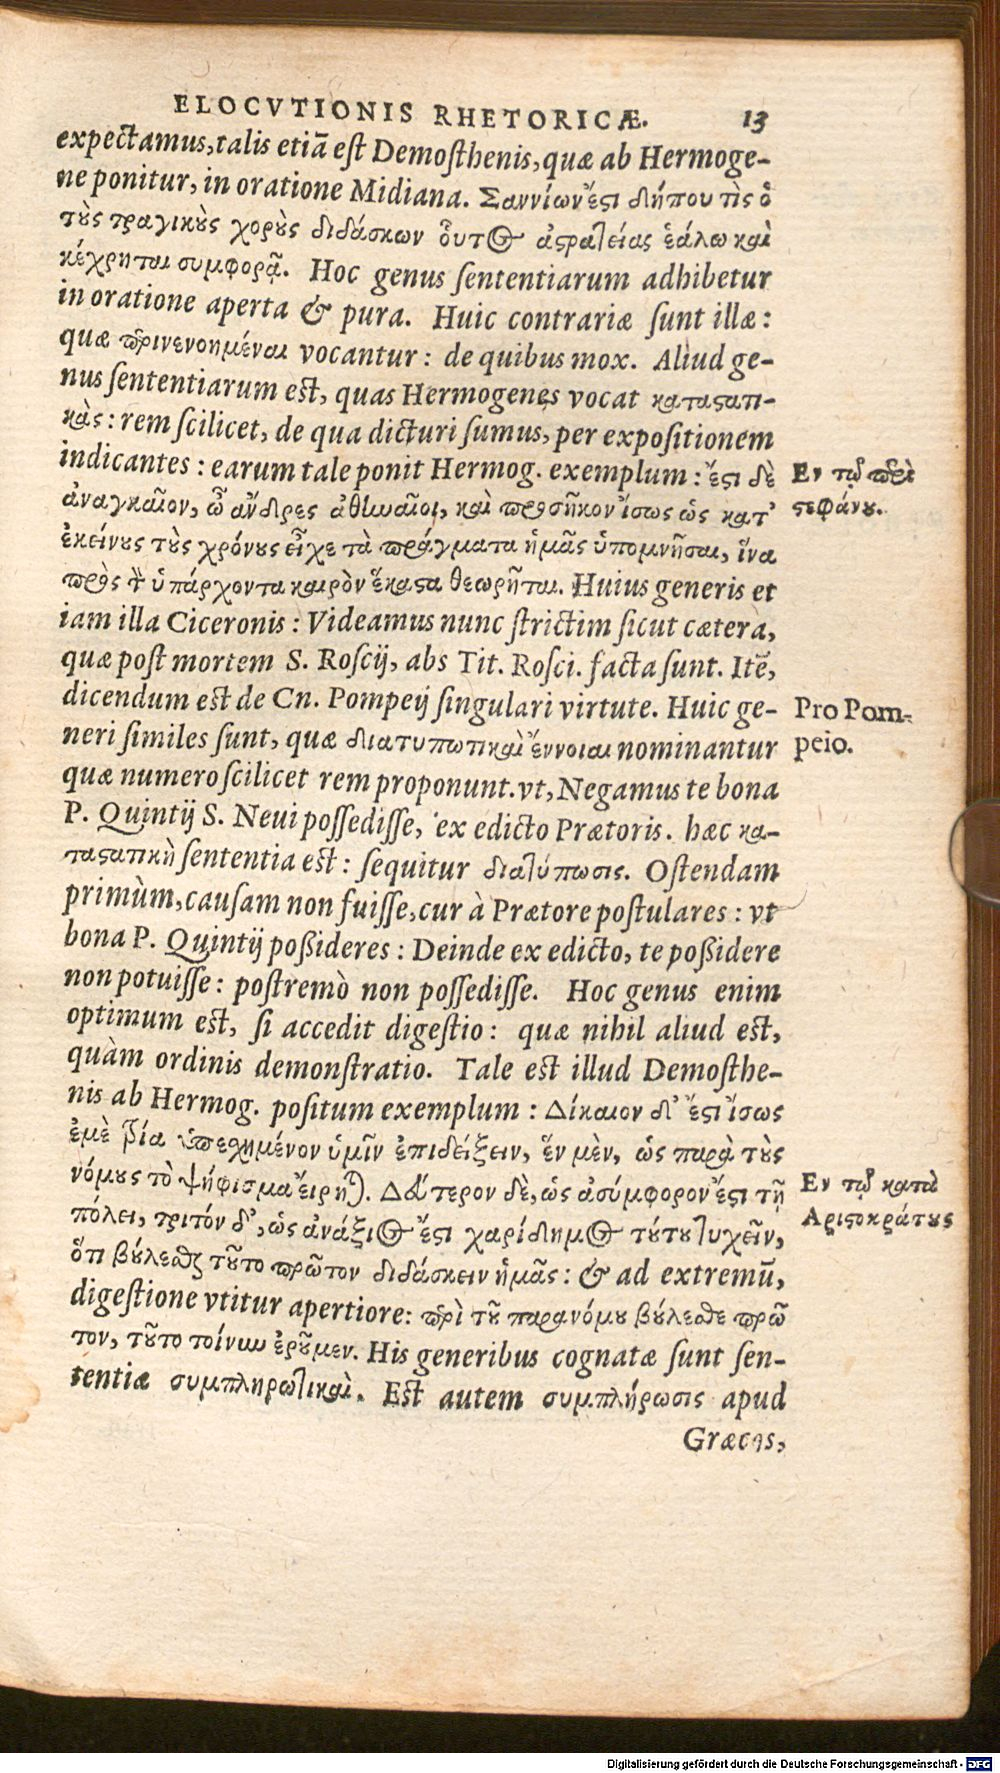 ELOCVTIONIS RHETORICÆ. 13
expectamus, talis etiā est Demosthenis, quæ ab Hermoge-
ne ponitur, in oratione Midiana. Σαννίων ἔϛι δήπου τὶς ὁ
τȣ̀ς τραγικȣ̀ς χορȣ̀ς διδάσκων οὗτος ἀϛρατείας ἑάλω καὶ
κέχρηται συμφορᾷ. Hoc genus sententiarum adhibetur
in oratione aperta & pura. Huic contrariæ sunt illæ:
quæ περινενοημέναι vocantur: de quibus mox. Aliud ge-
nus sententiarum est, quas Hermogenes vocat καταϛατι-
κὰς: rem scilicet, de qua dicturi sumus, per expositionem
indicantes: earum tale ponit Hermog. exemplum: ἔϛι δὲ
ἀναγκαῖον, ὦ ἄνδρες ἀθηναῖοι, καὶ προσῆκον ἴσως ὡς κατ'
ἐκείνȣς τȣ̀ς χρόνȣς εἶχε τὰ πράγματα ἡμᾶς ὑπομνῆσαι, ἵνα
πρὸς τὸν ὑπάρχοντα καιρὸν ἕκαϛα θεωρῆται. Huius generis et
iam illa Ciceronis: Videamus nunc strictim sicut cætera,
quæ post mortem S. Roscij, abs Tit. Rosci. facta sunt. Itē,
dicendum est de Cn. Pompeij singulari virtute. Huic ge-
neri similes sunt, quæ διατυπωτικαὶ ἔννοιαι nominantur
quæ numero scilicet rem proponunt. vt, Negamus te bona
P. Quintij S. Neui possedisse, ex edicto Prætoris. hæc κα-
ταϛατικὴ sententia est: sequitur διατύπωσις. Ostendam
primùm, causam non fuisse, cur à Prætore postulares: vt
bona P. Quintij poßideres: Deinde ex edicto, te poßidere
non potuisse: postremò non possedisse. Hoc genus enim
optimum est, si accedit digestio: quæ nihil aliud est,
quàm ordinis demonstratio. Tale est illud Demosthe-
nis ab Hermog. positum exemplum: Δίκαιον δ' ἔϛι ἴσως
ἐμὲ τρία ὑπεσχημένον ὑμῖν ἐπιδείξειν, ἓν μὲν, ὡς παρὰ τȣ̀ς
νόμȣς τὸ ψήφισμα εἴρηται. Δεύτερον δὲ, ὡς ἀσύμφορον ἔϛι τῇ
πόλει, τριτόν δ', ὡς ἀνάξιος ἔϛι χαρίδημος τύτȣ τυχεῖν,
ὅτι βύλεσθε τȣ͂το πρῶτον διδάσκειν ἡμᾶς: & ad extremū,
digestione vtitur apertiore: περὶ τȣ͂ παρανόμȣ βύλεσθε πρῶ
τον, τȣ͂το τοίνυν ἐρȣ͂μεν. His generibus cognatæ sunt sen-
tentiæ συμπληρωτικαὶ. Est autem συμπλήρωσις apud
Græcos,
Εν τῷ περὶ
ϛεφάνȣ.
Pro Pom-
peio.
Εν τῷ κατὰ
Αριϛοκράτȣς
Digitalisierung gefördert durch die Deutsche Forschungsgemeinschaft - DFG